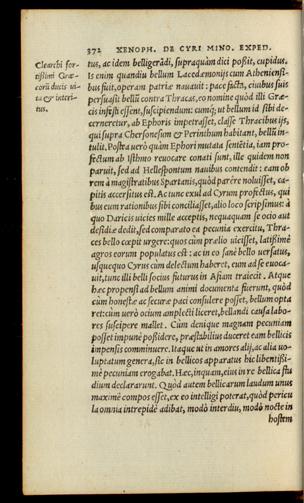 372 XENOPH. DE CYRI MINO. EXPED.
Clearchi for-
tissimi Græ-
corũ ducis ui-
ta & interi-
tus.
tus, ac idem belligerãdi, supraquàm dici possit, cupidus.
Is enim quandiu bellum Lacedæmonijs cum Atheniensi-
bus fuit, operam patriæ nauauit: pace facta, ciuibus suis
persuasit bellũ contra Thracas, eo nomine quòd illi Græ-
cis infesti essent, suscipiendum: cumq; ut bellum id sibi de-
cerneretur, ab Ephoris impetrasset, classe Thracibus ijs,
qui supra Chersonesum & Perinthum habitant, bellũ in-
tulit. Postea verò quàm Ephori mutata sentẽtia, iam pro-
fectum ab Isthmo reuocare conati sunt, ille quidem non
paruit, sed ad Hellespontum nauibus contendit: eam ob
rem à magistratibus Spartanis, quòd parére noluisset, ca-
pitis accersitus est. Ac tunc exul ad Cyrum profectus, qui
bus eum rationibus sibi conciliasset, alio loco scripsimus: à
quo Daricis uicies mille acceptis, nequaquam se ocio aut
desidiæ dedit, sed comparato ea pecunia exercitu, Thra-
ces bello cœpit urgere: quos cùm prælio uicisset, latissimè
agros eorum populatus est: ac in eo sanè bello uersatus,
usquequo Cyrus cùm delectum haberet, eum ad se euoca-
uit, tunc illi belli socius futurus in Asiam traiecit. Atque
hæc propensi ad bellum animi documenta fuerunt, quòd
cùm honestæ ac securæ paci consulere posset, bellum opta
ret: cùm verò ocium amplecti liceret, bellandi causa labo-
res suscipere mallet. Cùm denique magnam pecuniam
posset impunè possidere, præstabilius duceret eam bellicis
impensis comminuere. Itaque ut in amores alij, ac alia uo-
luptatum genera, sic in bellicos apparatus hic libentissi-
mè pecuniam erogabat. Hæc, inquam, eius in re bellica stu
dium declararunt. Quòd autem bellicarum laudum unus
maximè compos esset, ex eo intelligi poterat, quòd pericu
la omnia intrepidè adibat, modò interdiu, modò nocte in
hostem